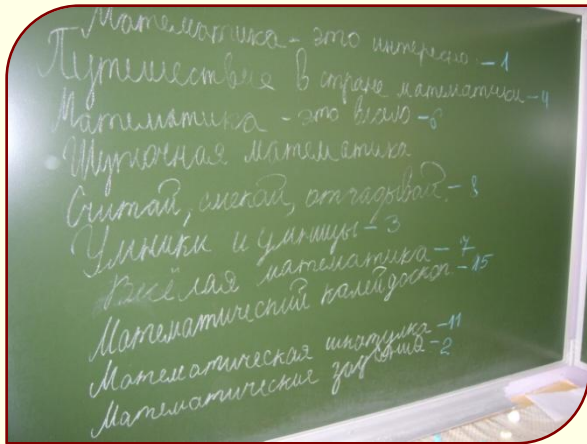 Математика - это интересно - 1
Путешествие в стране математики - 4
Математика - это весело - 6
Шуточная математика
Считай, смекай, отгадывай. - 8
Умники и умницы - 3
Весёлая математика - 7
Математический калейдоскоп - 15
Математическая шкатулка - 11
Математические задания - 2